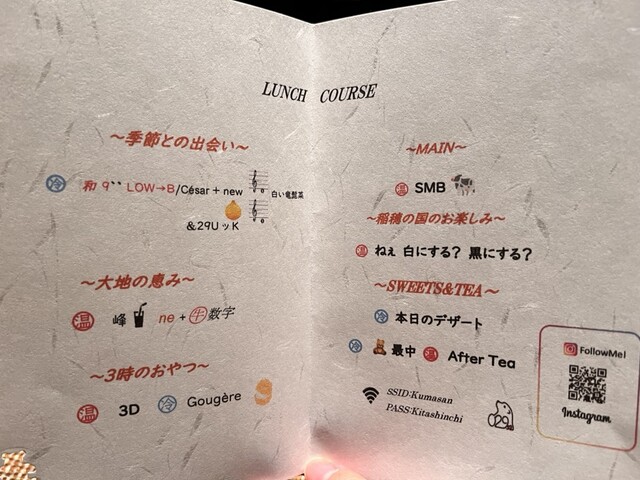 LUNCH COURSE
～季節との出会い～
冷 和 9`` LOW→B/César + new 白い竜髭菜
&29UッK
～大地の恵み～
温 峰 ne + 牛数字
～3時のおやつ～
温 3D 冷 Gougère 9
～MAIN～
温 SMB
～稲穂の国のお楽しみ～
温 ねぇ 白にする? 黒にする?
～SWEETS&TEA～
冷 本日のデザート
冷 最中 温 After Tea
SSID:Kumasan
PASS:Kitashinchi
29
FollowMe!
Instagram